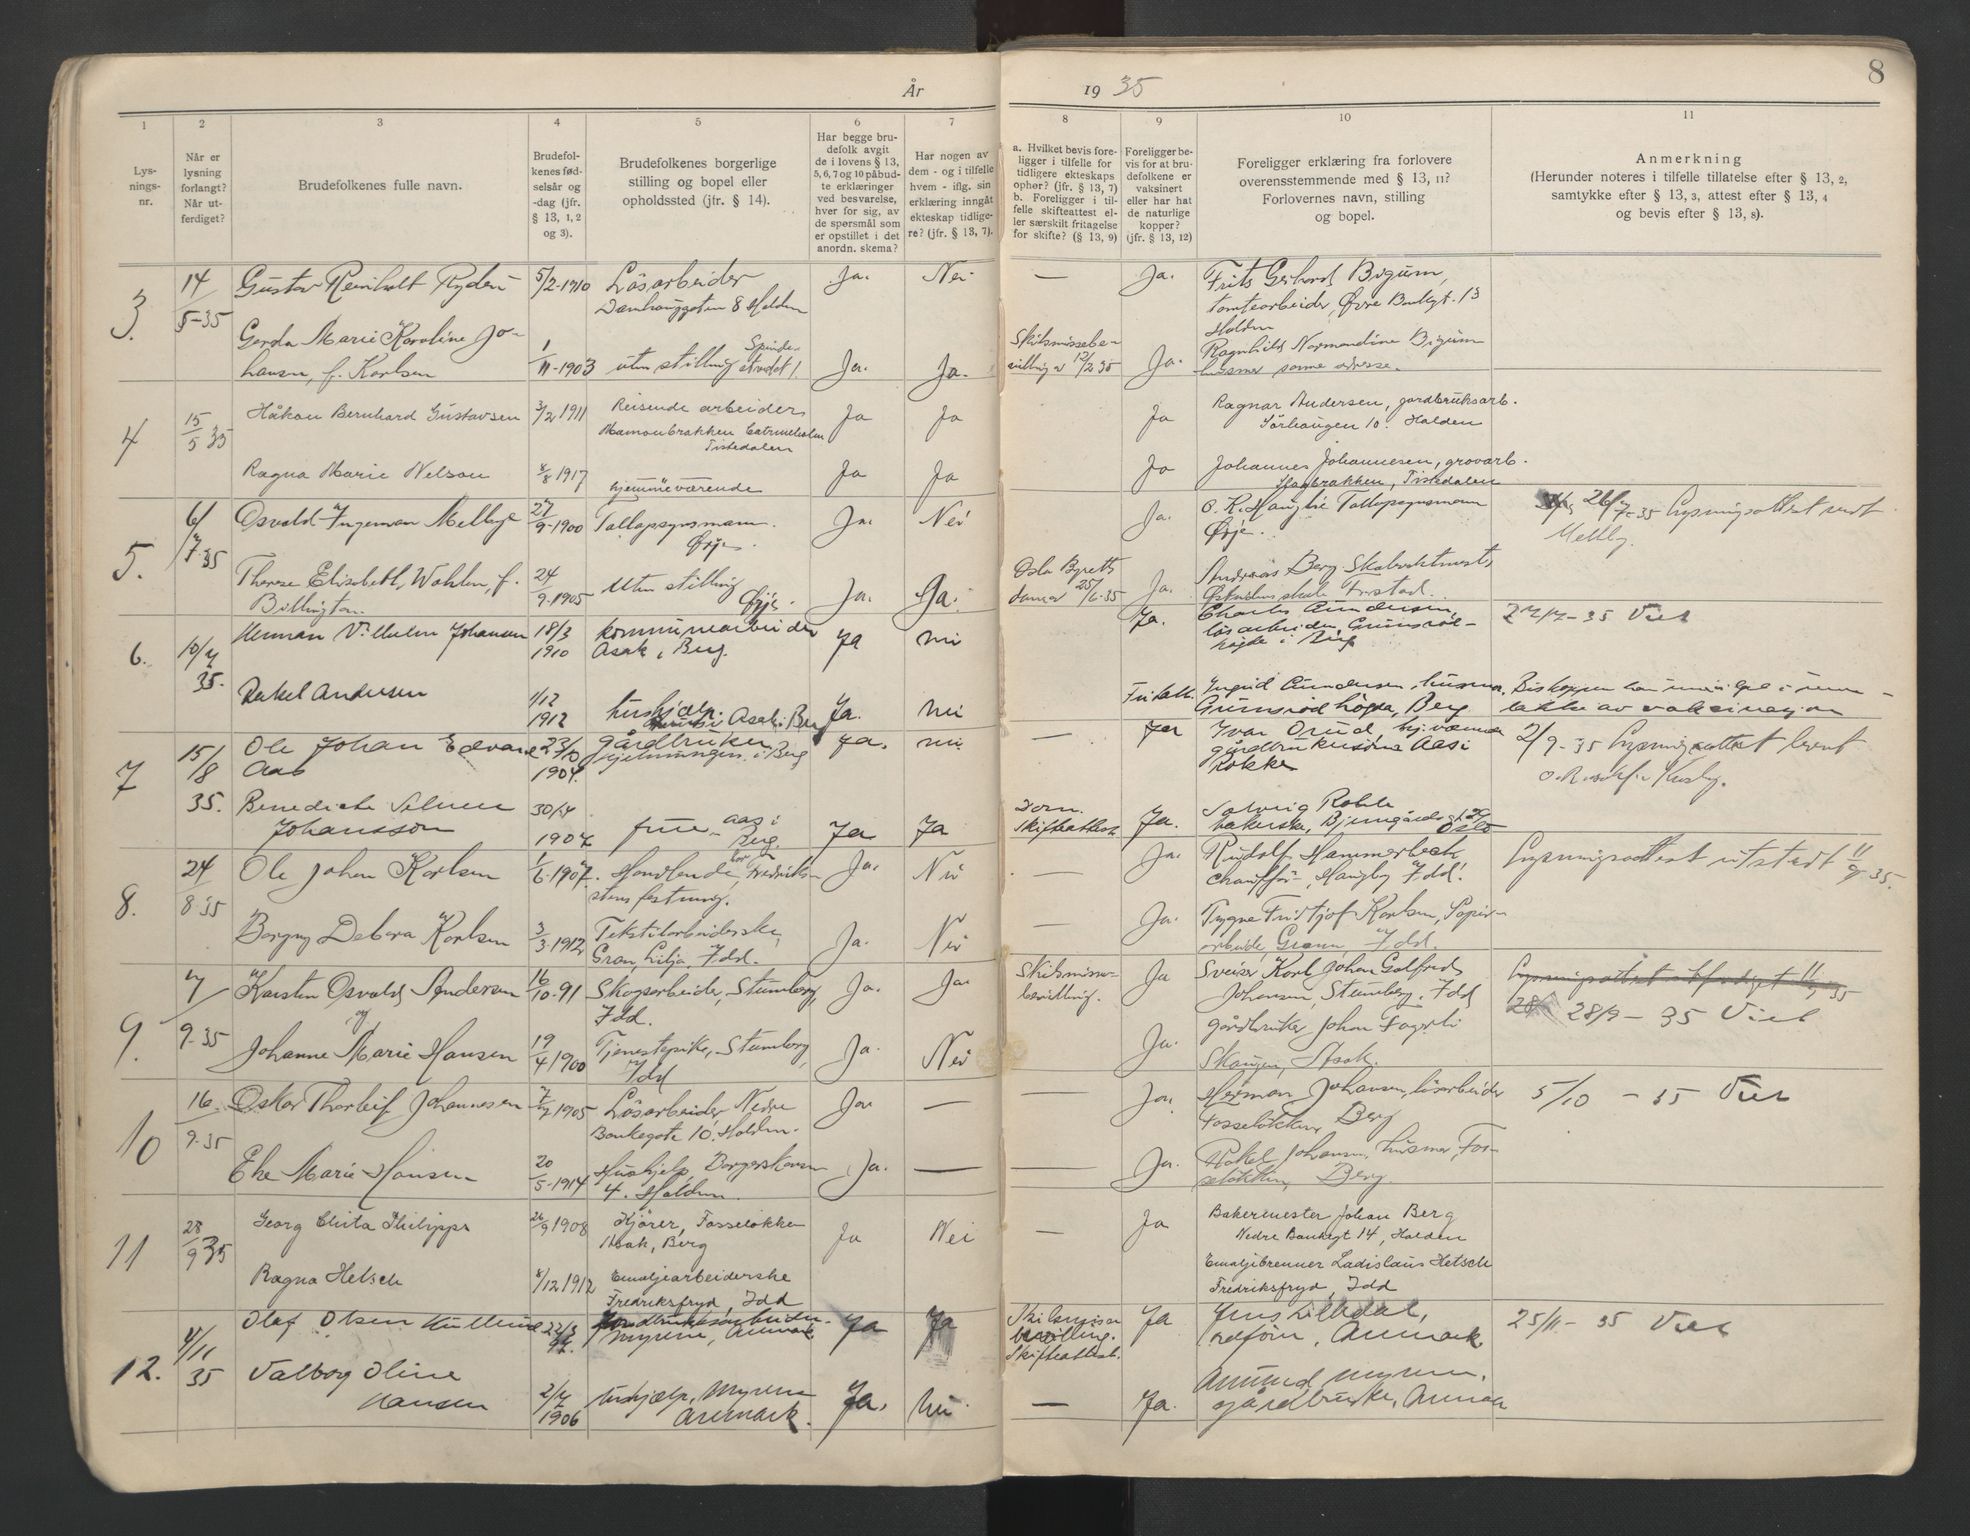 År 1935
8
1 2 3 4 5 6 7 8 9 10 11
Lys-
nings-
nr.
Når er
lysning
forlangt?
Når ut-
ferdiget?
Brudefolkenes fulle navn.
Brudefol-
kenes fød-
selsår og
-dag (jfr.
§ 13, 1, 2
og 3).
Brudefolkenes borgerlige
stilling og bopel eller
opholdssted (jfr. § 14).
Har begge bru-
defolk avgit
de i lovens § 13,
5, 6, 7 og 10 påbud-
te erklæringer
ved besvarelse,
hver for sig, av
de spørsmål som
er opstillet i det
anordn. skema?
Har nogen av
dem - og i tilfelle
hvem - iflg. sin
erklæring inngått
ekteskap tidlige-
re? (jfr. § 13, 7).
a. Hvilket bevis fore-
ligger i tilfelle for
tidligere ekteskaps
ophør? (jfr. § 13, 7)
b. Foreligger i til-
felle skifteattest el-
ler særskilt fritagelse
for skifte? (§ 13, 9)
Foreligger be-
vis for at bru-
defolkene er
vaksinert
eller har hat
de naturlige
kopper?
(jfr. § 13, 12)
Foreligger erklæring fra forlovere
overensstemmende med § 13, 11?
Forlovernes navn, stilling
og bopel.
Anmerkning
(Herunder noteres i tilfelle tillatelse efter § 13, 2,
samtykke efter § 13, 3, attest efter § 13, 4
og bevis efter § 13, 8).
3. 14/5-35 Gustav Reinholt Rydén 5/2-1910 Løsarbeider Ja. Nei — Ja. Frits Gerhard Bigum,
8 Halden tomtearbeider, Øvre Bankgt. 13
Halden
Gerda Marie Karoline Jo-
hansen, f. Karlsen 1/11-1903 uten stilling Ja. Ja. Skilsmissebe-
villing 12/2 35 Ja. Ragnhild Normandine Bigum
husmor samme adresse.
4 15/5 35 Håkon Bernhard Gustavsen 3/2 1911 Reisende arbeider Ja Ja Ja Ragnar Andersen, jordbruksarb.
Tistedalen Sørhaugen 10. Halden
Ragna Marie Nelson 8/8 1917 hjemmeværende Ja Ja Ja Johannes Johannesen, grovarb.
Tistedalen
5. 6/7-35 Osvald Ingeman Mellbye 27/9-1900 Tollopsynsmann. Ja. Nei Ja. O. K. Tollopsynsmann 26/7-35 Lysningsattest sendt
Ørje. Ørje. Mellby.
Therese Elisabeth Wohlen, f.
Billington 24/9-1905 Uten stilling Ørje. Ja. Ja. Oslo Byretts
25/6-35 Ja. Andreas Berg
6. 10/7 35. Herman Vilhelm Johansen 18/3 1910 kommunearbeider
Asak i Berg. Ja nei Ja. Charles Gundersen,
løsarbeider, Grimsrød-
høgda i Berg 27/7-35 Viet
Rakel Andersen 1/12 1912 hushjelp. Asak i Berg Ja. nei Ingrid Gundersen, husmor,
Grimsrødhøgda, Berg
7 15/8 35. Ole Johan Edvard
Aas 23/10 1904. gårdbruker
i Berg Ja. nei — Ja Ivar Orud,
Rokke 2/9-35 Lysningsattest
Benedicte Selma
Johansson 30/4 1904 frue - Aas i
Berg. Ja Ja Dom.
Skifteattest Ja. Solveig
Oslo
8. 24/8-35 Ole Johan Karlsen 1/6-1907. Handlende, Fredrik-
stens festning. Ja. Nei — Ja. Rudolf Hammerbeck
chauffør, Idd. Lysningsattest utstedt 11/9 35.
Borgny Debora Karlsen 3/3-1912 Tekstilarbeiderske,
Idd. Ja. Nei — Ja. Trygve Fridtjof Karlsen, Papir-
arbeider, Idd.
9. 7/9-35 Karsten Osvald Andersen
og 16/10-91 Skogsarbeider, Stumberg,
Idd. Ja. Ja. Skilsmisse-
bevilling. Ja Sveiser Karl Johan Galfred
Johansen, Stumberg, Idd Lysningsattest utferdiget 11/9 35
28/9-35 Viet
Johanne Marie Hansen 19/4 1900 Tjenestepike, Stumberg,
Idd Ja. Nei Ja. Gårdbruker Johan Fagerli
Skaugen, Asak.
10 16/9-35 Oskar Thorleif Johannesen 7/7 1905 Løsarbeider, Nedre
Bankegate 10. Halden. Ja. — — Ja. Herman Johansen, løsarbeider
Fosseløkken, Berg 5/10-35 Viet
Else Marie Hansen 20/5-1914 Hushjelp,
4. Halden. Ja. — — Ja. Rakel Johansen, husmor, Fos-
seløkken, Berg.
11 28/9 35 Georg Philipps 26/9 1908 Kjører, Fosseløkken
Asak, Berg Ja Nei — Ja Bakermester Johan Berg
Nedre Bankegt 14, Halden
Ragna Hetsch 8/12 1912 Emaljearbeiderske
Fredriksfryd, Idd Emaljebrenner Ladislaus Hetsch
Fredriksfryd, Idd
12. 4/11 35 Olaf Olsen 22/3
Myrene, Aremark Ja Ja Skilsmisse
bevilling.
Skifteattest. Ja Jens Lilledal,
Aremark 25/11-35 Viet
Valborg Oline
Hansen 2/7 1906 hushjelp, Myrene
Aremark. Ja. nei. — Ja. Amund Myrene,
gårdbruker, Aremark